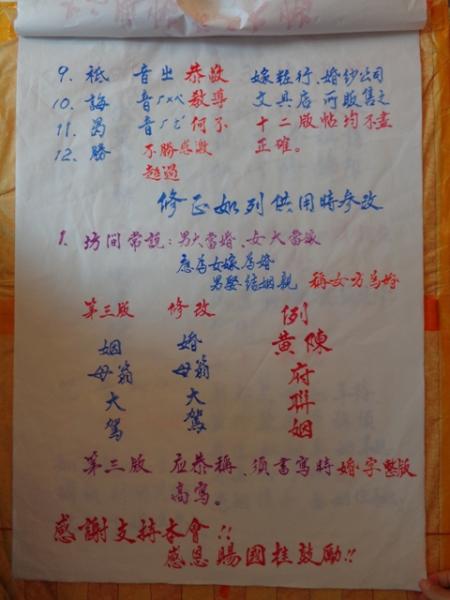 9. 祗 音出 恭敬 嫁粧行、婚紗公司
10. 誨 音ㄏㄨㄟˋ 教導 文具店 所販售之
11. 曷 音ㄏㄜˊ 何不 十二版帖均不盡
12. 勝 不勝感激 正確。
超過
修正如列供用時參改
1. 坊間常說:男大當婚、女大當嫁
應為女嫁為婚
男娶結姻親 稱女方為婚
第三版 修改 例
姻母翁大駕
婚母翁大駕
黃陳府聯姻
第三版 应恭稱、須書寫時婚字整版
高寫。
感謝支持本會!!
感恩賜國桂鼓勵!!